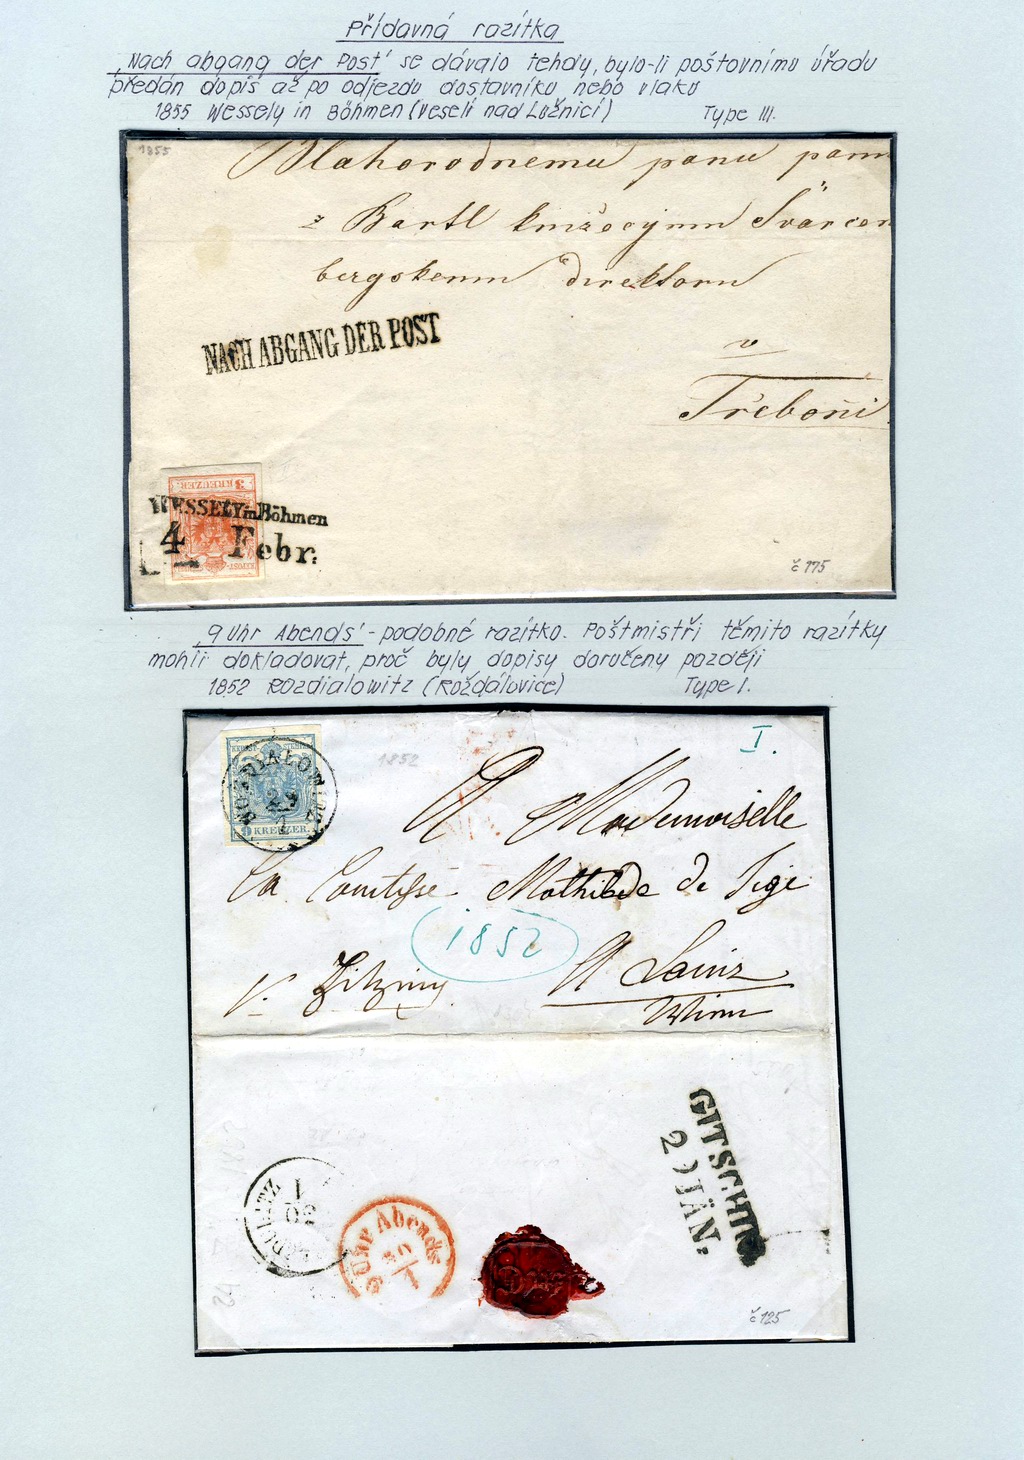 Přídavná razítka
‚Nach abgang der Post' se dávalo tehdy, bylo-li poštovnímu úřadu
předán dopis až po odjezdu dostavníku nebo vlaku
1855 Wessely in Böhmen (Veselí nad Lužnicí) Type III.
1855
Blahorodnemu panu panu
z Bartl knižecýmu Švarcen
bergskemu direktoru
NACH ABGANG DER POST
v
Třeboni
3 KREUZER
WESSELY in Böhmen
4 Febr.
č 175
‚9 Uhr Abends' - podobné razítko. Poštmistři těmito razítky
mohli dokladovat, proč byly dopisy doručeny později
1852 Rozdialowitz (Rožďálovice) Type I.
I.
1852
KK POST-STEMPEL
ROZDIALOWITZ
29
1
9 KREUZER
A Mademoiselle
La Comtesse Mathilde de
1852
A Sainz
GITSCHIN
29 JÄN.
9 Uhr Abends
30
1
č 125